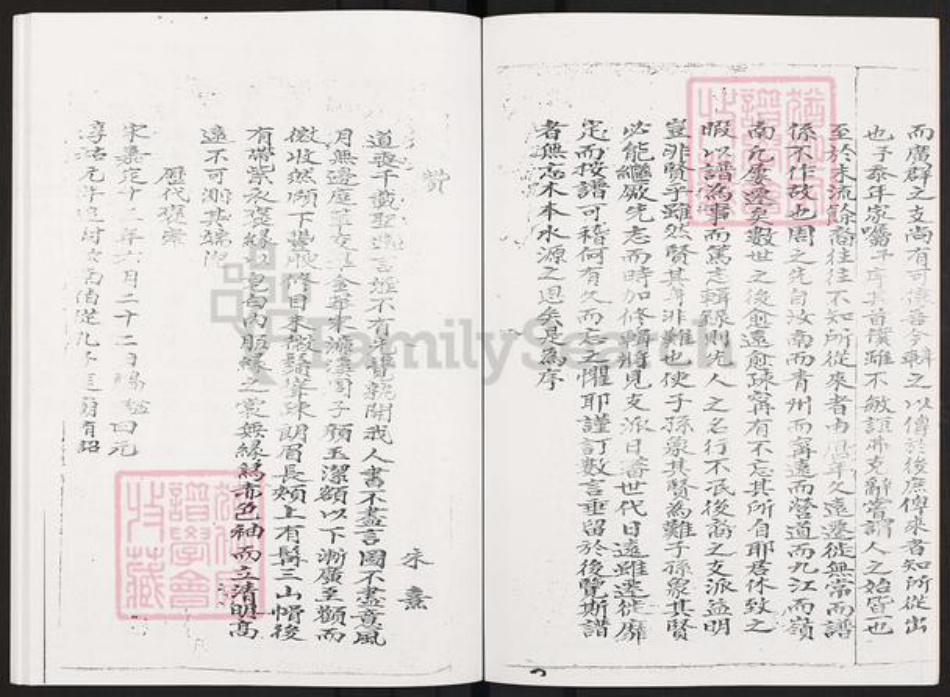 而廣群之支尚有可
以傳於後庶俾來者知所從出
也予泰年家囑予序其首僕雖不敏誼弗克辭嘗謂人之始皆一也
至於末流餘裔往往不知所從來者由歷年久遠遷徙無常而譜
係不作故也周之先自汝南而青州而寧遠而營道而九江而嶺
南凡屢遷矣數世之後愈遠愈疎寧有不忘其所自耶君休致之
暇以譜為事而篤志輯錄則先人之名行不泯後裔之支派益明
豈非賢乎雖然賢其身非難也使子孫象其賢為難子孫象其賢
必能繼厥先志而時加修輯將見支派日蕃世代日遠雖遷徙靡
定而按譜可稽何有久而忘之懼耶謹訂數言垂留於後覽斯譜
者無忘木本水源之思矣是為序
贊
朱熹
道喪千載聖遠言湮不有先覺孰開我人書不盡言圖不盡意風
月無邊庭草交
金華宋濂
周子顏玉潔額以下漸廣至顴而
微收然頤下
修目末微
疎朗眉長頰上有髯三山帽後
有帶紫衣褒緣以皂白內服緣之裳無緣舄赤色袖而立清明高
遠不可測其端
歷代褒崇
宋嘉定十二年六月二十二日賜謚曰元
淳祐元年
封汝南伯從祀